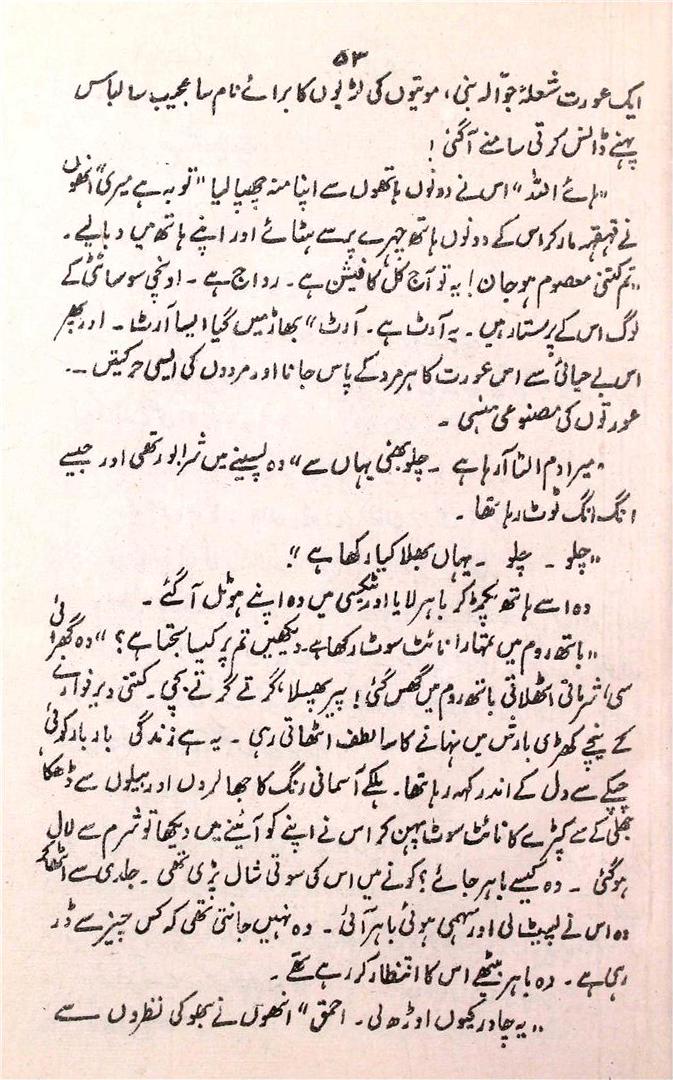 ۵۳
ایک عورت شعلۂ جوّالہ بنی، موتیوں کی لڑیوں کا برائے نام سا عجیب سا لباس
پہنے ڈانس کرتی سامنے آگئی!
"ہائے اللہ" اس نے دونوں ہاتھوں سے اپنا منہ چھپا لیا "توبہ ہے میری" انھوں
نے قہقہہ مار کر اس کے دونوں ہاتھ چہرے پر سے ہٹائے اور اپنے ہاتھ میں دبا لیے۔
"تم کتنی معصوم ہو جان! یہ تو آج کل کا فیشن ہے۔ رواج ہے۔ اونچی سوسائٹی کے
لوگ اس کے پرستار ہیں۔ یہ آرٹ ہے۔ آرٹ" بھاڑ میں گیا ایسا آرٹ۔ اور پھر
اس بے حیائی سے اس عورت کا ہر مرد کے پاس جانا اور مردوں کی ایسی حرکتیں۔۔
عورتوں کی مصنوعی ہنسی۔
"میرا دم الٹا آرہا ہے ۔ چلو بھئی یہاں سے" وہ پسینے میں شرابور تھی اور جیسے
انگ انگ ٹوٹ رہا تھا۔
"چلو ۔ چلو ۔ یہاں بھلا کیا رکھا ہے"۔
وہ اسے ہاتھ پکڑ کر باہر لایا اور ٹیکسی میں وہ اپنے ہوٹل آگئے۔
"باتھ روم میں تمہارا نائٹ سوٹ رکھا ہے۔ دیکھیں تم پر کیسا سجتا ہے؟" وہ گھبرائی
سی، شرماتی اٹھلاتی باتھ روم میں گھس گئی! پیر پھسلا، گرتے گرتے بچی۔ کتنی دیر فوارے
کے نیچے کھڑی بارش میں نہانے کا سا لطف اٹھاتی رہی۔ یہ ہے زندگی بار بار کوئی
چپکے سے دل کے اندر کہہ رہا تھا۔ ہلکے آسمانی رنگ کا جھالروں اور بیلوں سے ڈھکا
جھلی کے سے کپڑے کا نائٹ سوٹ پہن کر اس نے اپنے کو آئینے میں دیکھا تو شرم سے لال
ہوگئی ۔ وہ کیسے باہر جائے؟ کونے میں اس کی سوتی شال پڑی تھی۔ جلدی سے اٹھا کر
وہ اس نے لپیٹا لی اور سہمی ہوئی باہر آئی۔ وہ نہیں جانتی تھی کہ کس چیز سے ڈر
رہی ہے۔ وہ باہر بیٹھے اس کا انتظار کر رہے تھے۔
"یہ چادر کیوں اوڑھ لی۔ احمق" انھوں نے بھوکی نظروں سے